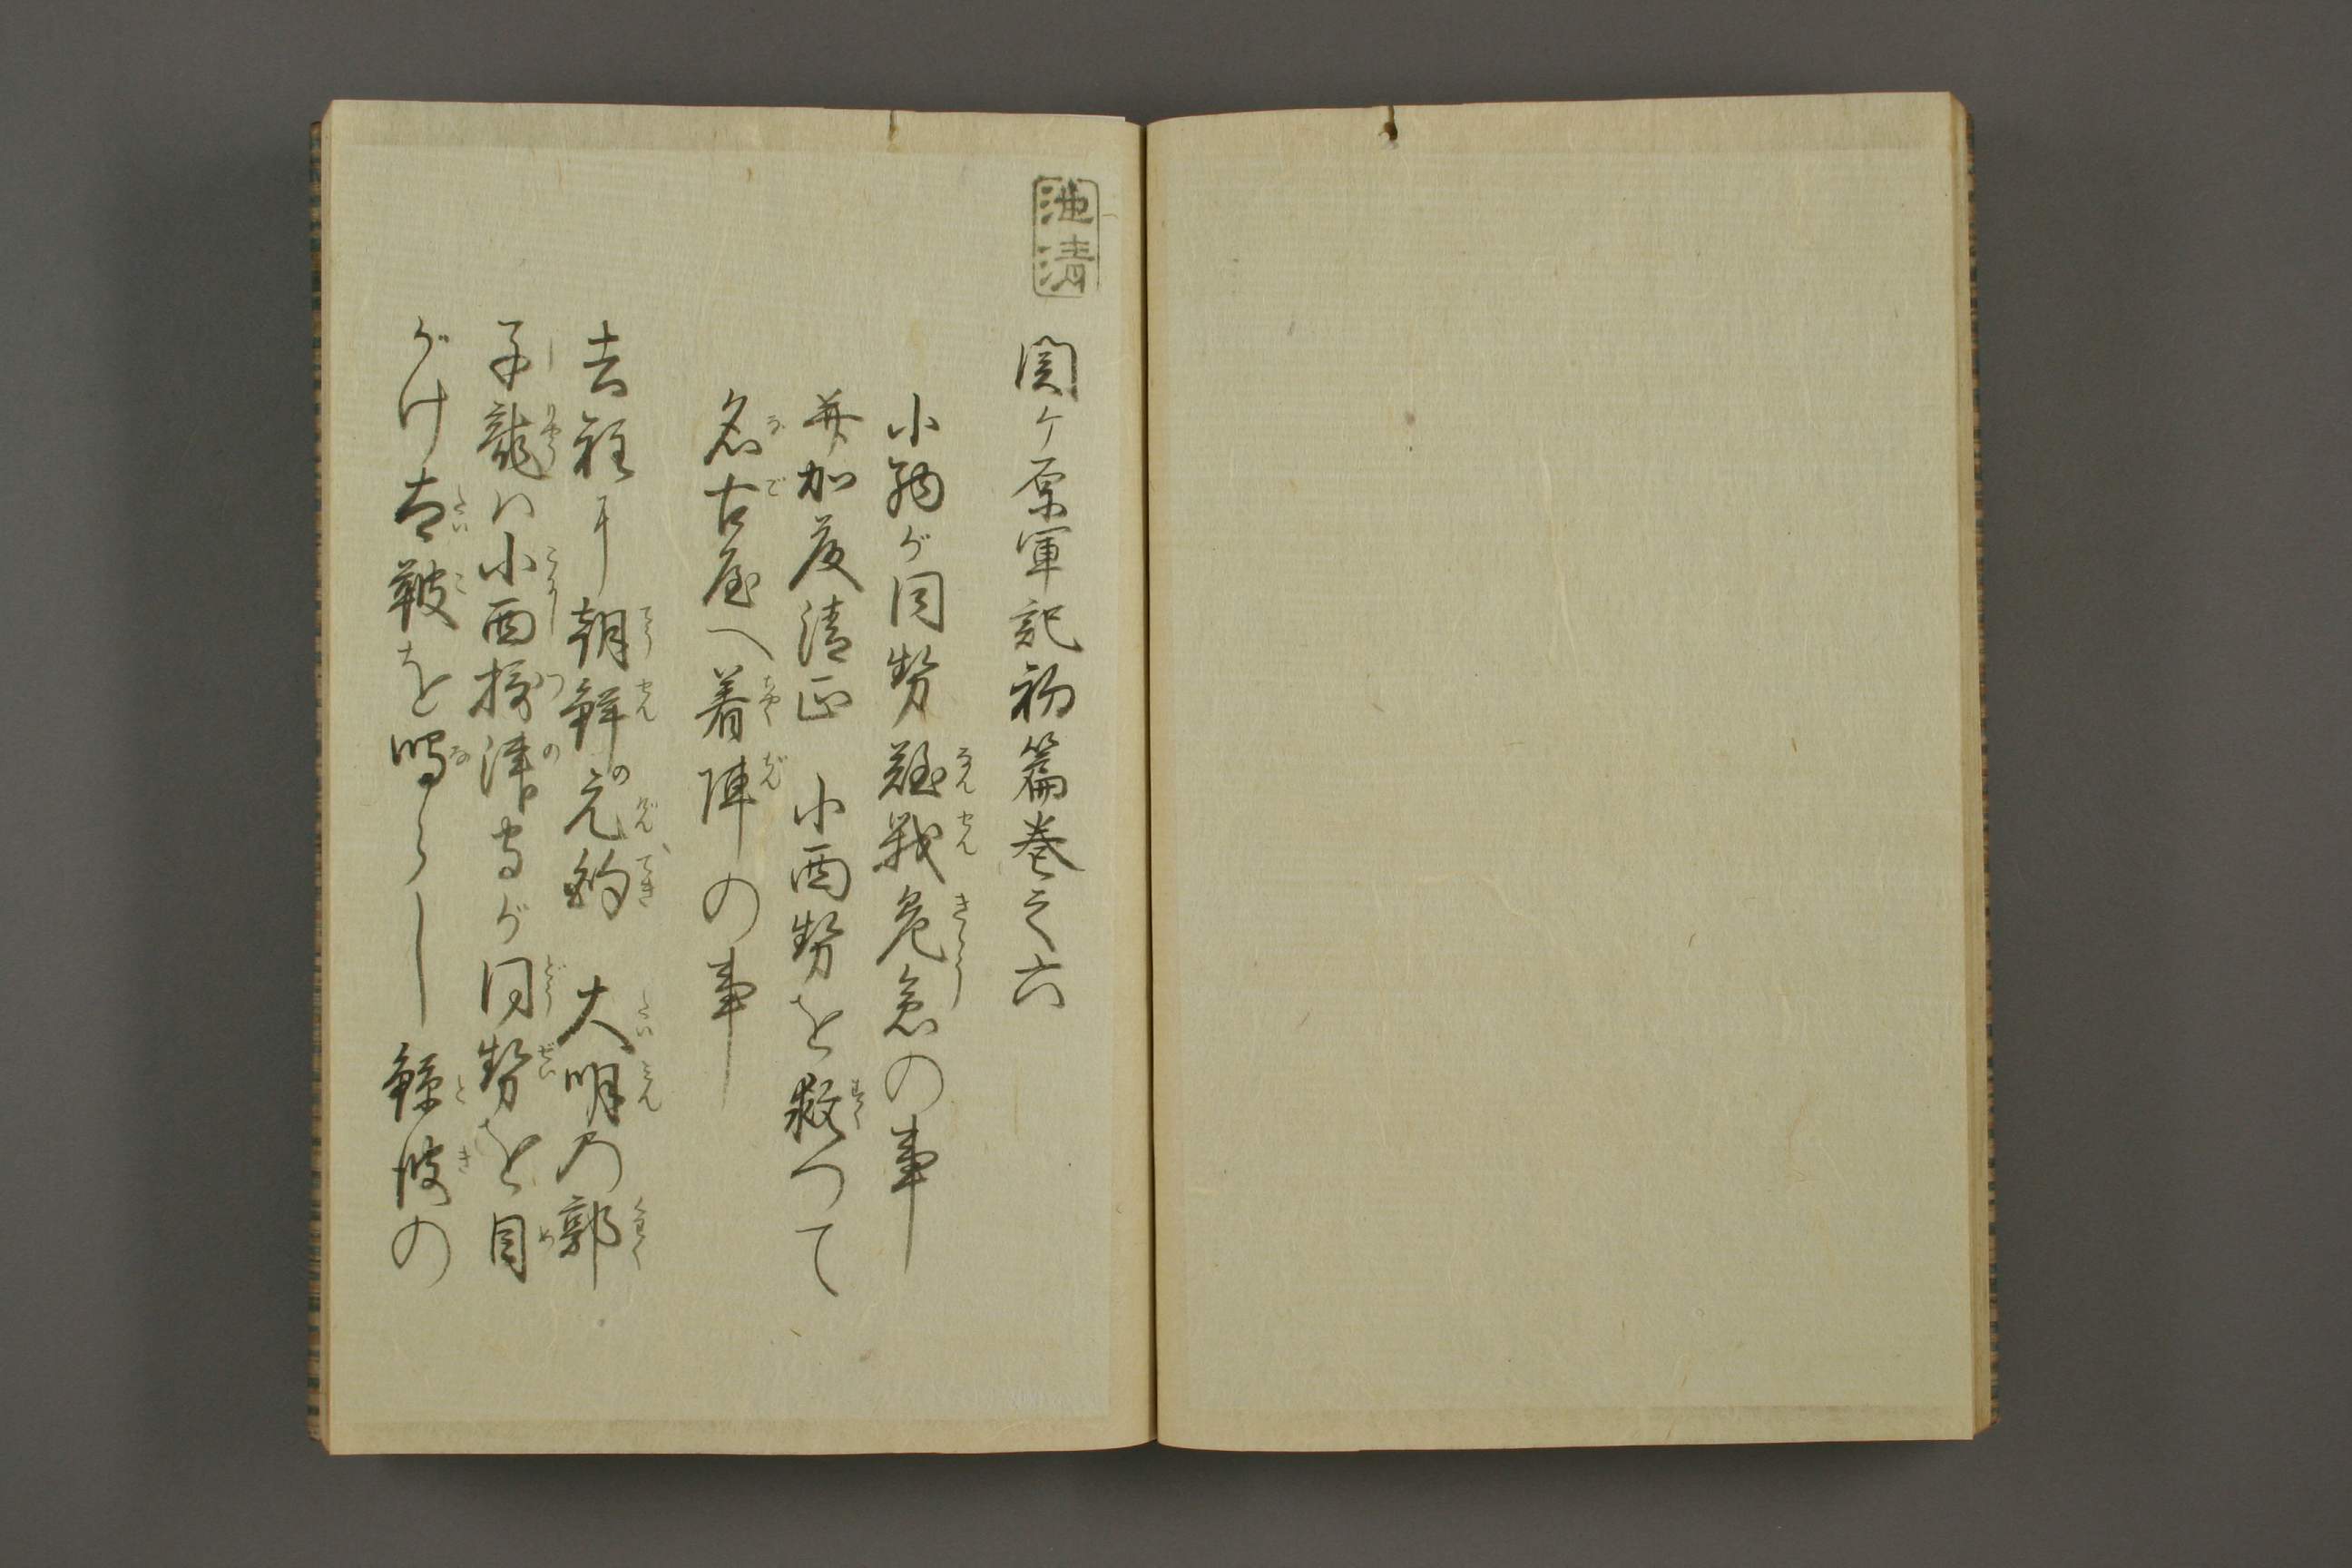 池清
関ヶ原軍記初篇巻之六
小西が同勢難戦危急の事
并加藤清正 小西勢を救つて
名古屋へ着陣の事
去程に朝鮮の元鈞 大明乃郭
子龍ハ小西摂津守が同勢を目
がけ太鞁を鳴らし鯨波の